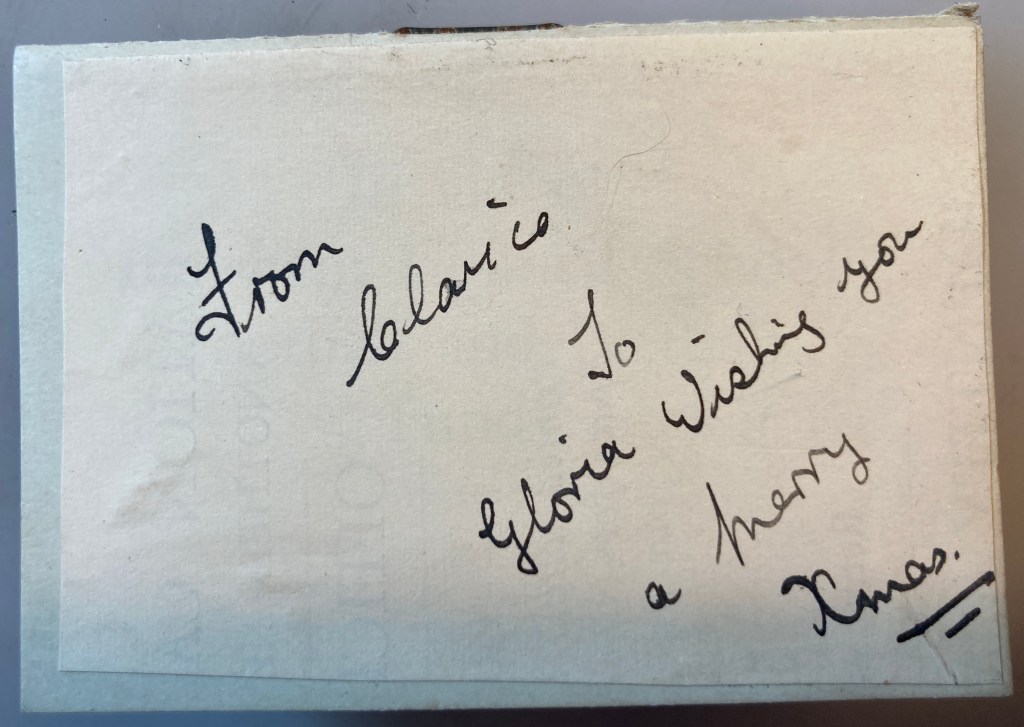 From
Clarice
To
Gloria Wishing you
a Merry
Xmas.